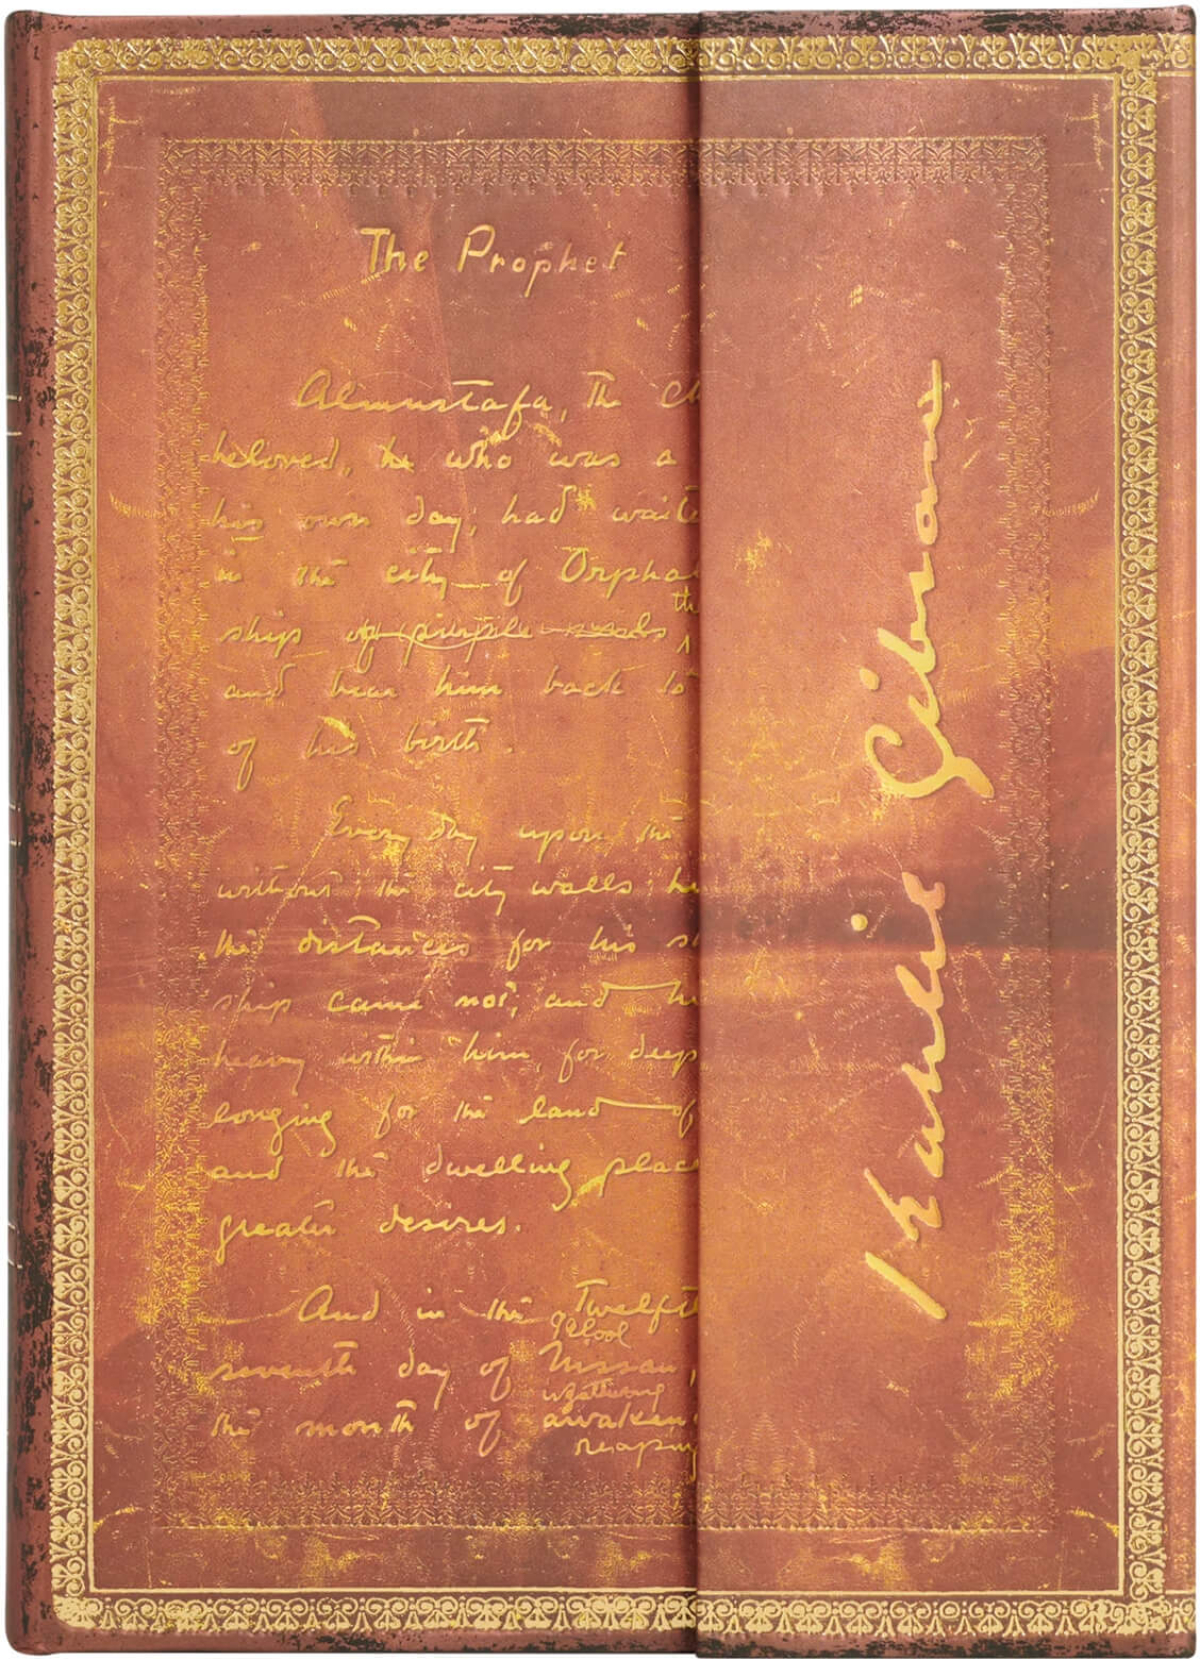 The Prophet
Almustafa, the ch
beloved, he who was a
his own day, had waite
in the city of Orphal
th
ship of purple
and bear him back to
of his birth.
Every day upon the
without the city walls he
the distances for his s
ship came not; and h
heavy within him, for deep
longing for the land of
and the dwelling place
greater desires.
And in the Twelfth
Illool
seventh day of Nissan,
gathering
the month of awaken
reaping
Kahlil Gibran